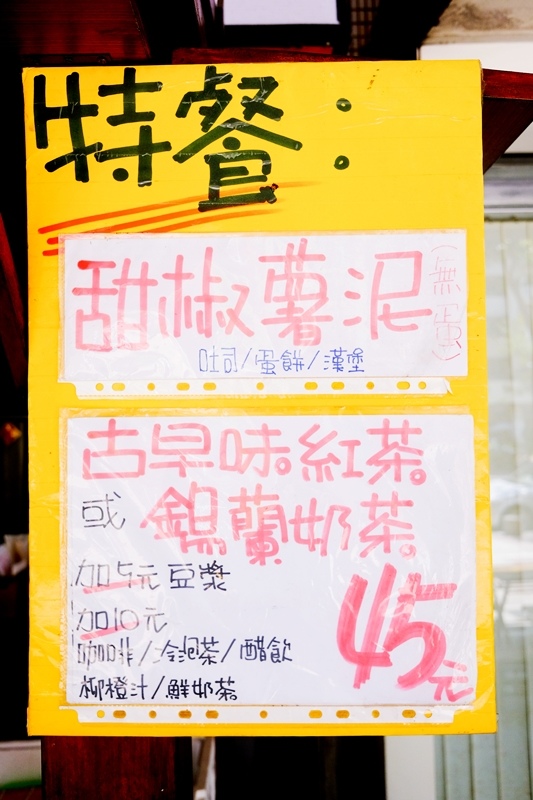 特餐：
甜椒薯泥(無蛋)
吐司/蛋餅/漢堡
古早味紅茶
或 錫蘭奶茶
加5元豆漿
加10元
45元
咖啡/冷泡茶/醋飲
柳橙汁/鮮奶茶